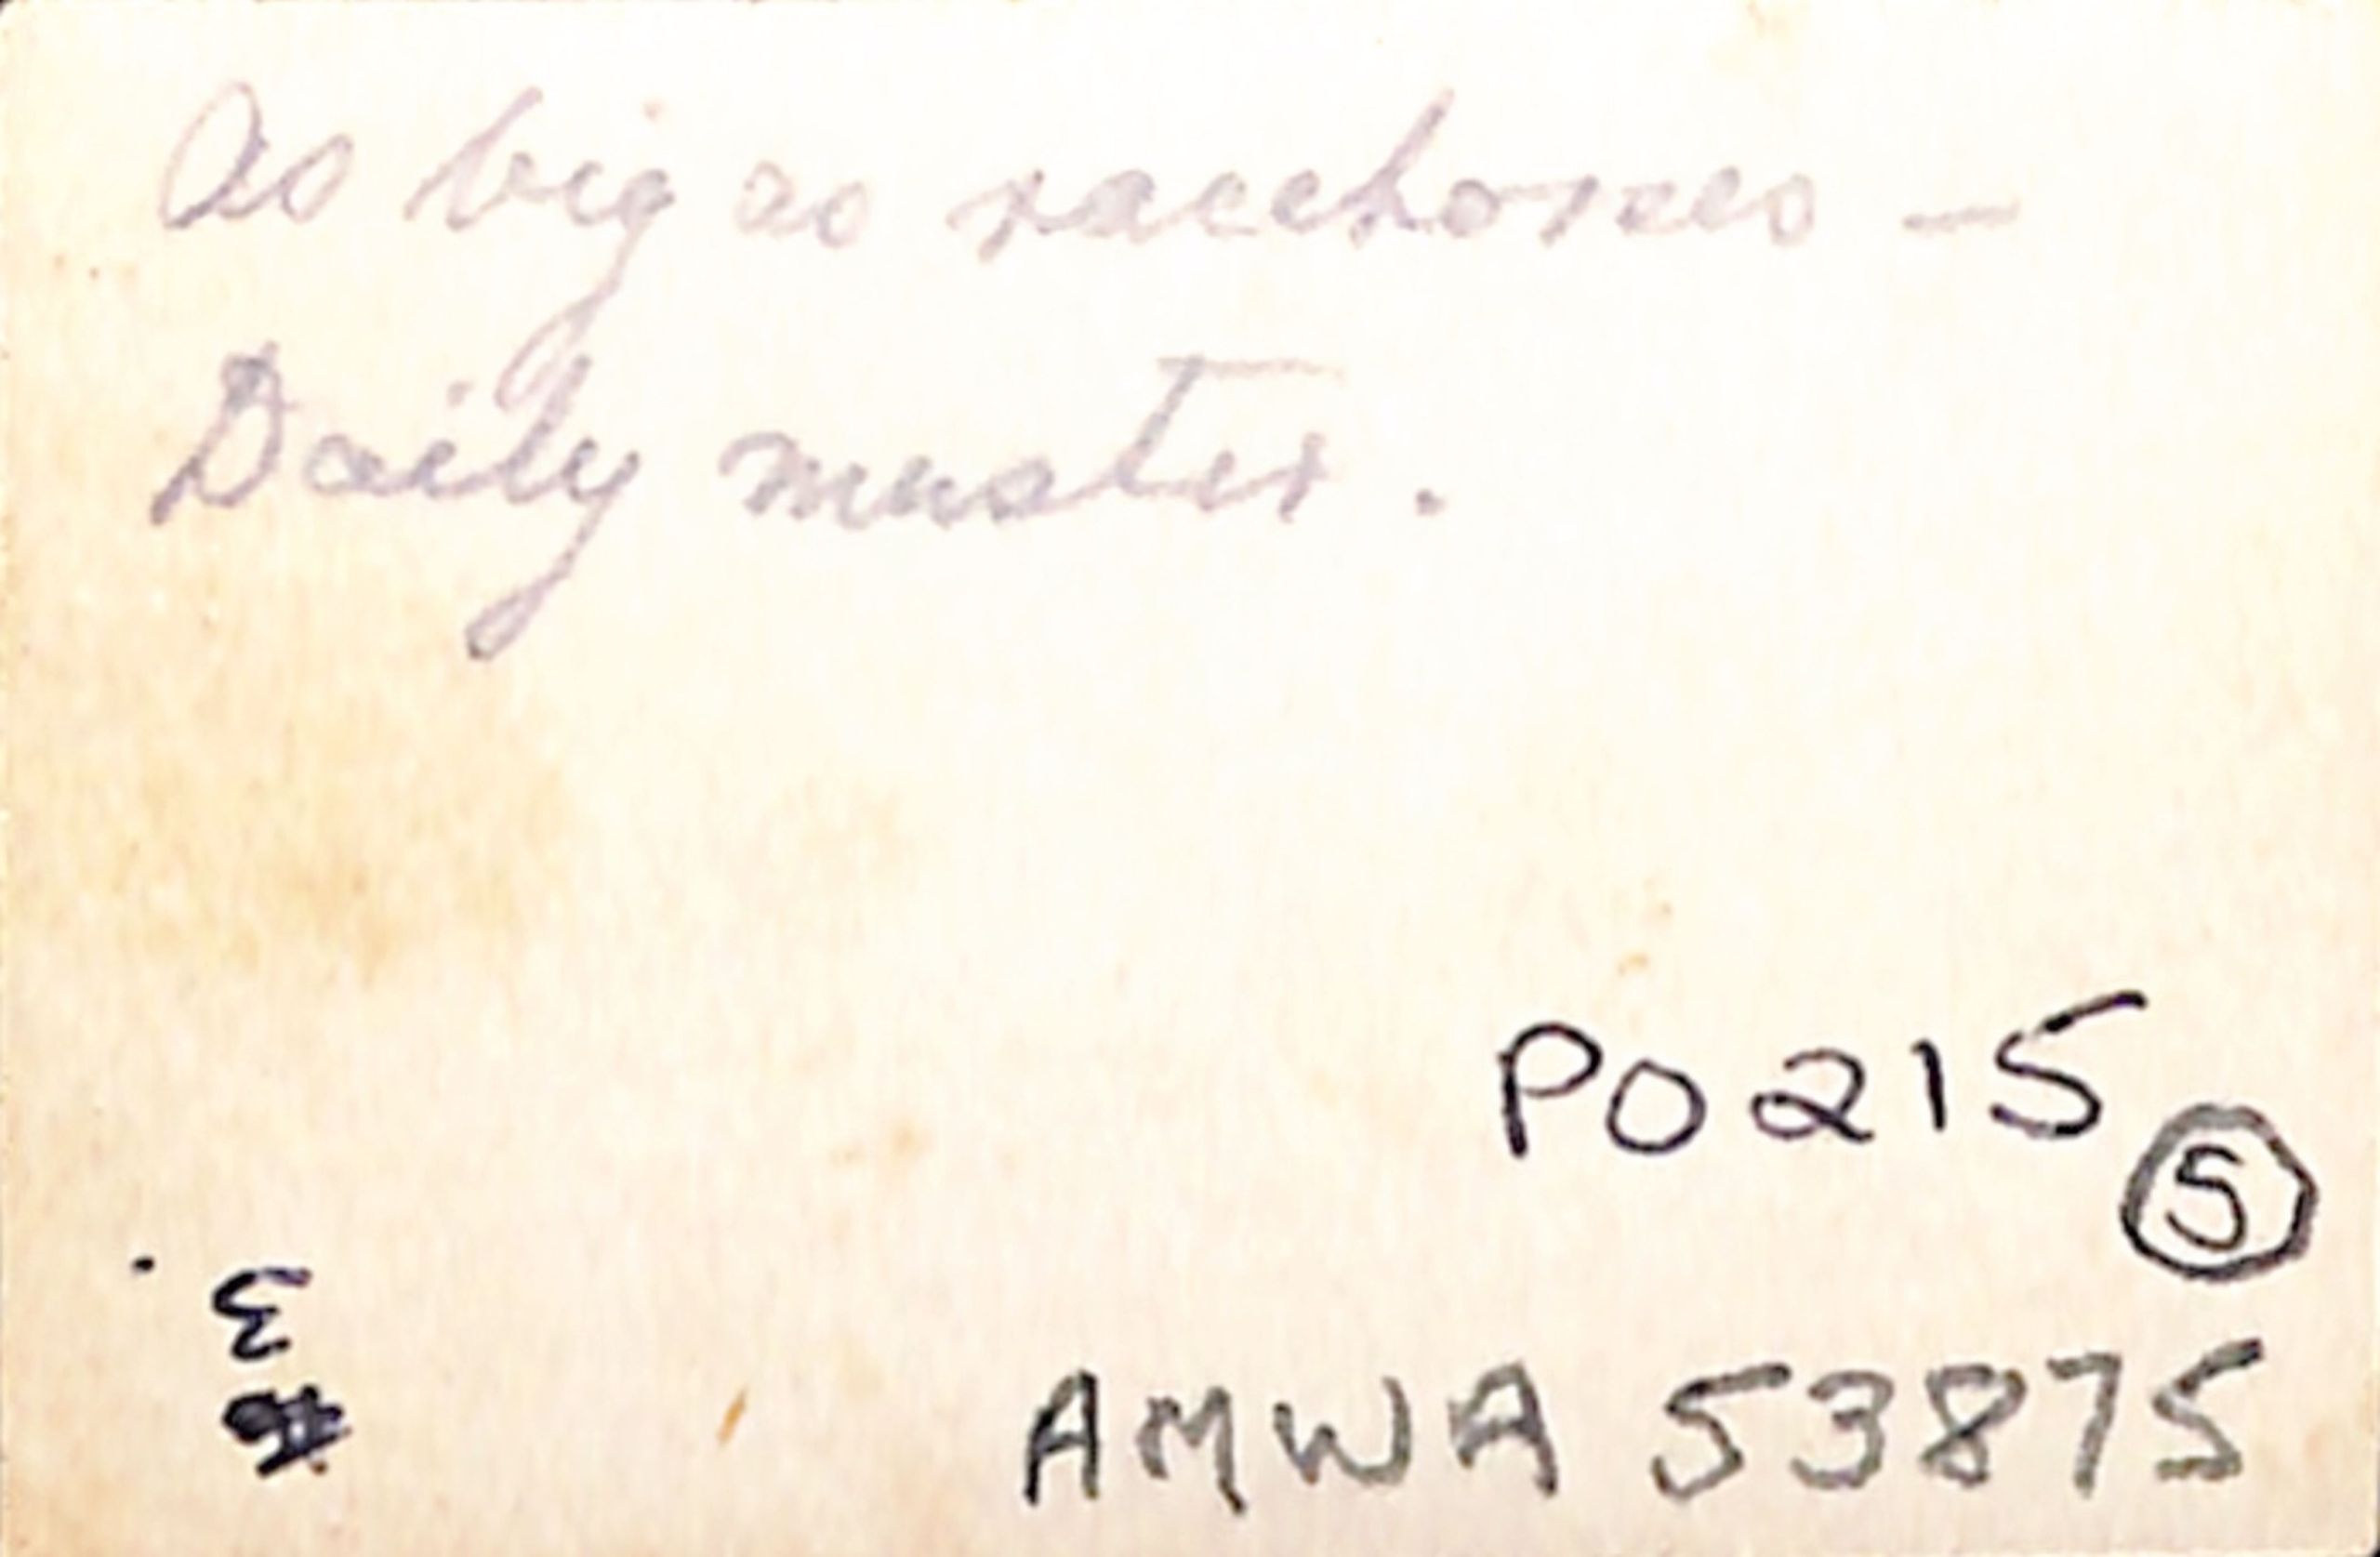 As big as racehorses —
Daily muster.
P0215
5
AMWA 53875
3